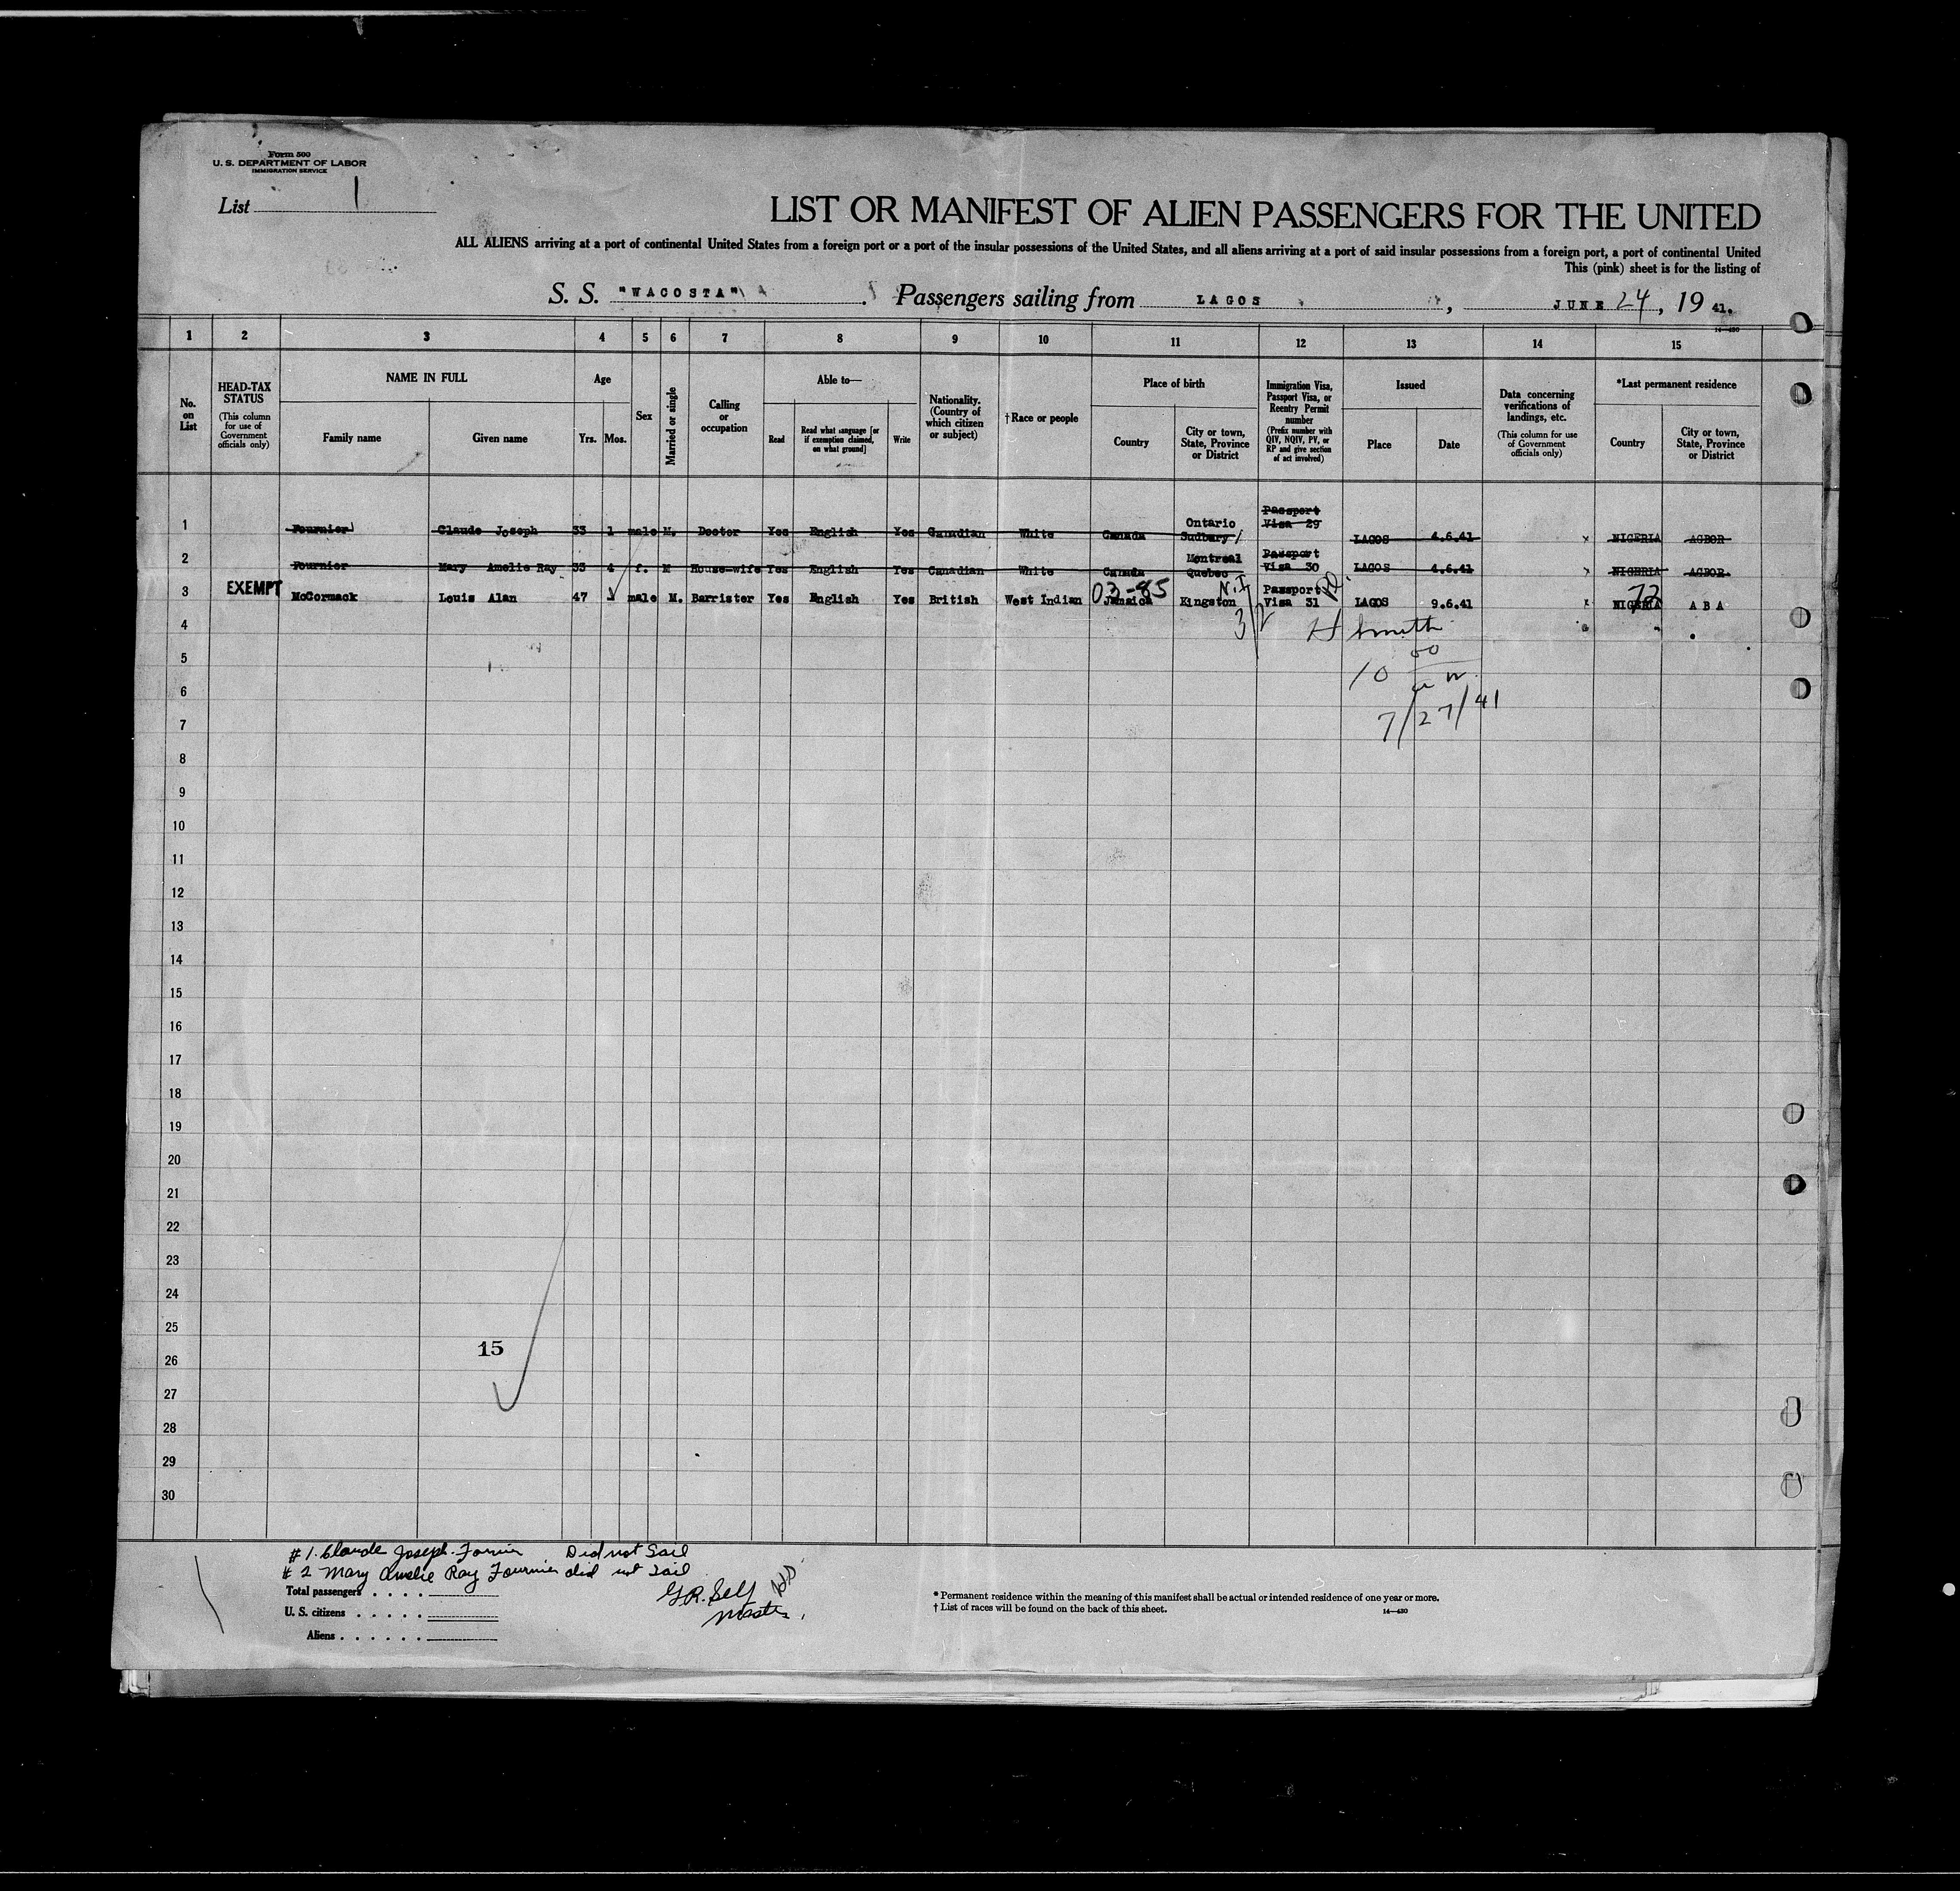 Form 500
U. S. DEPARTMENT OF LABOR
IMMIGRATION SERVICE
List 1
LIST OR MANIFEST OF ALIEN PASSENGERS FOR THE UNITED
ALL ALIENS arriving at a port of continental United States from a foreign port or a port of the insular possessions of the United States, and all aliens arriving at a port of said insular possessions from a foreign port, a port of continental United
This (pink) sheet is for the listing of
S. S. "WACOSTA" Passengers sailing from LAGOS, JUNE 24, 19 41.
14—430
1 2 3 4 5 6 7 8 9 10 11 12 13 14 15
No. on List
HEAD-TAX STATUS (This column for use of Government officials only)
NAME IN FULL
Family name Given name
Age
Yrs. Mos.
Sex
Married or single
Calling or occupation
Able to—
Read Read what language [or if exemption claimed, on what ground] Write
Nationality. (Country of which citizen or subject)
†Race or people
Place of birth
Country City or town, State, Province or District
Immigration Visa, Passport Visa, or Reentry Permit number (Prefix number with QIV, NQIV, PV, or RP and give section of act involved)
Issued
Place Date
Data concerning verifications of landings, etc. (This column for use of Government officials only)
*Last permanent residence
Country City or town, State, Province or District
1 Fournier Claude Joseph 33 1 male M. Doctor Yes English Yes Canadian White Canada Ontario Sudbury Passport Visa 29 LAGOS 4.6.41 x NIGERIA AGBOR
2 Fournier Mary Amelie Ray 33 4 f. M House-wife Yes English Yes Canadian White Canada Montreal Quebec Passport Visa 30 LAGOS 4.6.41 x NIGERIA AGBOR
3 EXEMPT McCormack Louis Alan 47 male M. Barrister Yes English Yes British West Indian Jamaica Kingston Passport Visa 31 LAGOS 9.6.41 x NIGERIA A B A
03-85 N.I 72
4 Smith
5
6 10 00
7 7/27/41
8
9
10
11
12
13
14
15
16
17
18
19
20
21
22
23
24
25
15
26
27
28
29
30
#1. Claude Joseph Fornier Did not Sail
#2 Mary Amelie Ray Fournier did not Sail
Total passengers
U. S. citizens
Aliens
G.R. Self
Master
* Permanent residence within the meaning of this manifest shall be actual or intended residence of one year or more.
† List of races will be found on the back of this sheet.
14—430